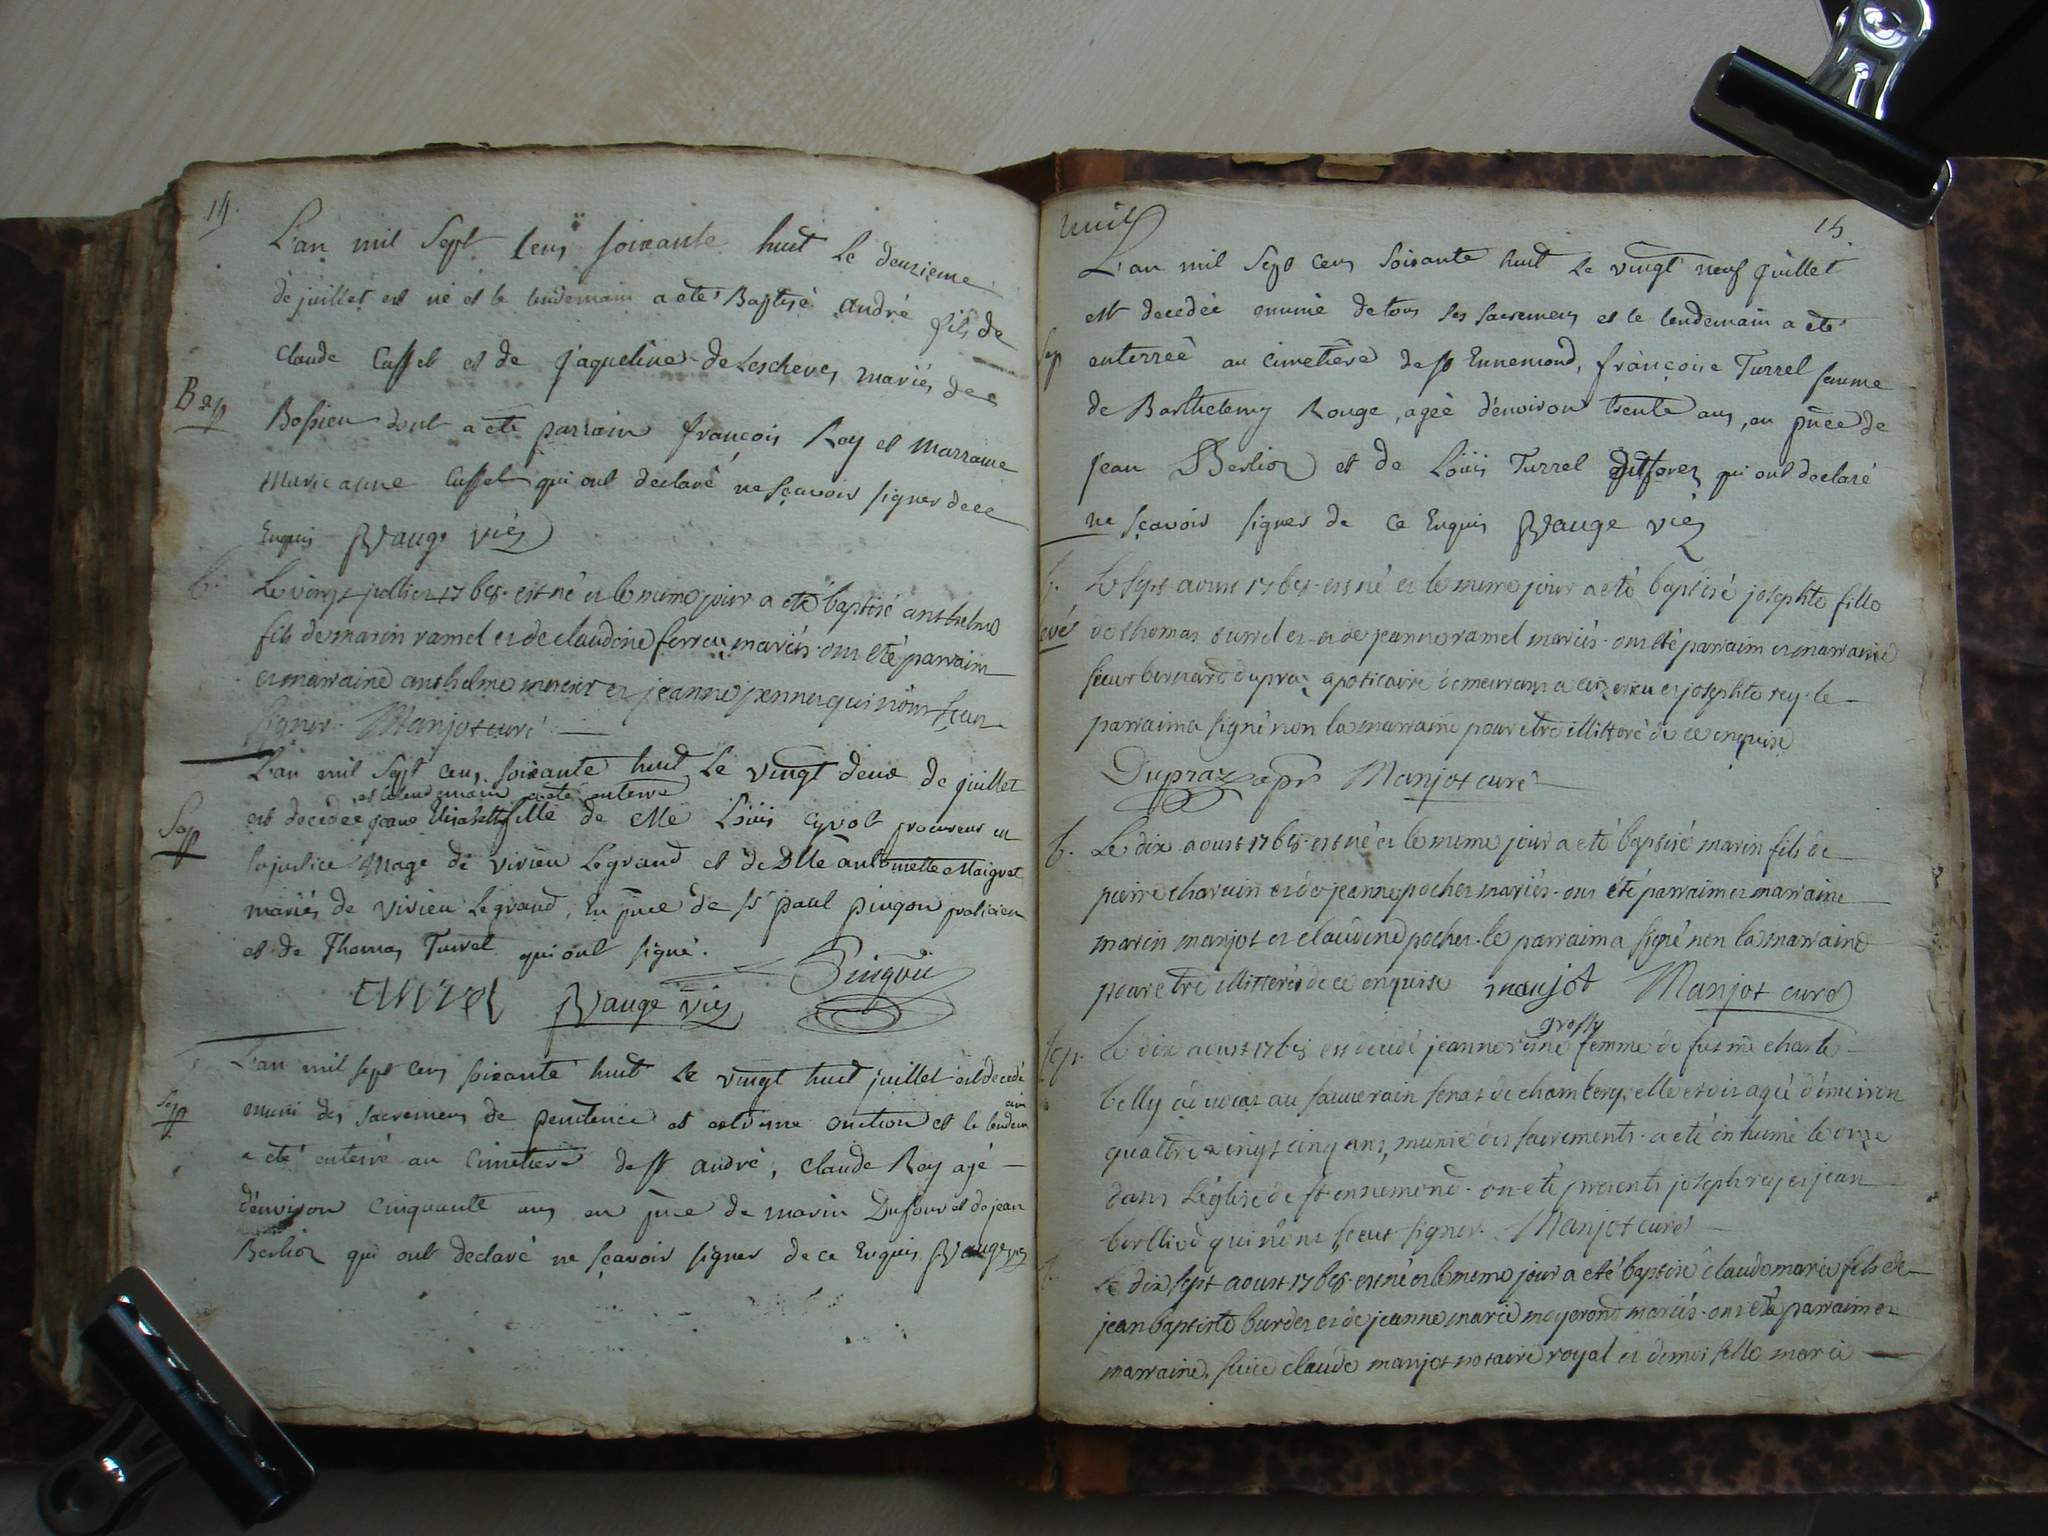 14.
L'an mil sept cens soixante huit le deuxieme
de juillet est né et le lendemain a eté Baptisé andré fils de
Claude Cusset et de jaqueline de Lescheres mariés de
Bap
Bossieu dont a eté parrain françois Roy et marraine
marie anne Cusset qui ont declaré ne sçavoir signer de ce
Enquis Vauge vic
b.
Le vingt juillet 1768. est né et le meme jour a eté baptisé anthelme
fils de marin ramel et de claudine ferrou mariés. ont eté parrain
et marraine anthelme mercier et jeanne qui n'ont sceu
signer. Manjot curé
L'an mil sept cens soixante huit Le vingt deux de juillet
et lendemain a eté enterré
est decedée jeanne Elisabeth fille de Me Loüis cyvot procureur en
Sep
la justice Mage de virieu Legrand et de Dlle antoinette Maigret
mariés de virieu Legrand, En pnce de sr paul pingon praticien
et de Thomas Turrel qui ont signé.
turrel Vauge vic Pingon
L'an mil sept cens soixante huit Le vingt huit juillet est decedé
Sep
muni des sacremens de penitence et extreme onction et le lendemain
a eté enterré au Cimetiere de st andré, claude Roy agé
d'environ cinquante ans en pnce de marin Dufour et de jean
Berlioz qui ont declaré ne sçavoir signer de ce Enquis Vauge vic
huit
15.
L'an mil sept cens soixante huit le vingt neuf juillet
est decedée munie de tous ses sacremens et le lendemain a eté
Sep
enterreé au cimetière de st Ennemond, françoise Turrel femme
de Barthelemy Rouge, ageé d'environ trente ans, en pnce de
jean Berlioz et de Loüis Turrel qui ont declaré
ne sçavoir signer de ce Enquis Vauge vic
b.
Le sept aoust 1768. est né et le meme jour a eté baptisé josephte fille
de thomas turrel et de jeanne ramel mariés. ont eté parrain et marraine
sieur bernard dupraz apoticaire demeurant a et josephte rey. le
parrain a signé non la marraine pour etre illitteré de ce enquise
Dupraz Manjot curé
b.
Le dix aoust 1768. est né et le meme jour a eté baptisé marin fils de
pierre charvin et de jeanne pochet mariés. ont eté parrain et marraine
marin manjot et claudine pochet. le parrain a signé non la marraine
pour etre illitteré de ce enquise manjot Manjot curé
sep.
grosly
Le dix aoust 1768 est decedé jeanne reine femme de fut me charle
belly avocat au souverain senat de chambery, elle etoit ageé d'environ
quattre vingt cinq ans, munie des sacrements. a eté inhumé le onze
dans L'eglise de st ennemond. ont eté presents joseph rey et jean
berlliod qui n'ont sceut signer. Manjot curé
Le dix sept aoust 1768. est né et le meme jour a eté baptisé claude marie fils de
jean baptiste burdet et de jeanne marie moyerond mariés. ont eté parrain et
marraine, sieur claude manjot notaire royal et demoiselle marie